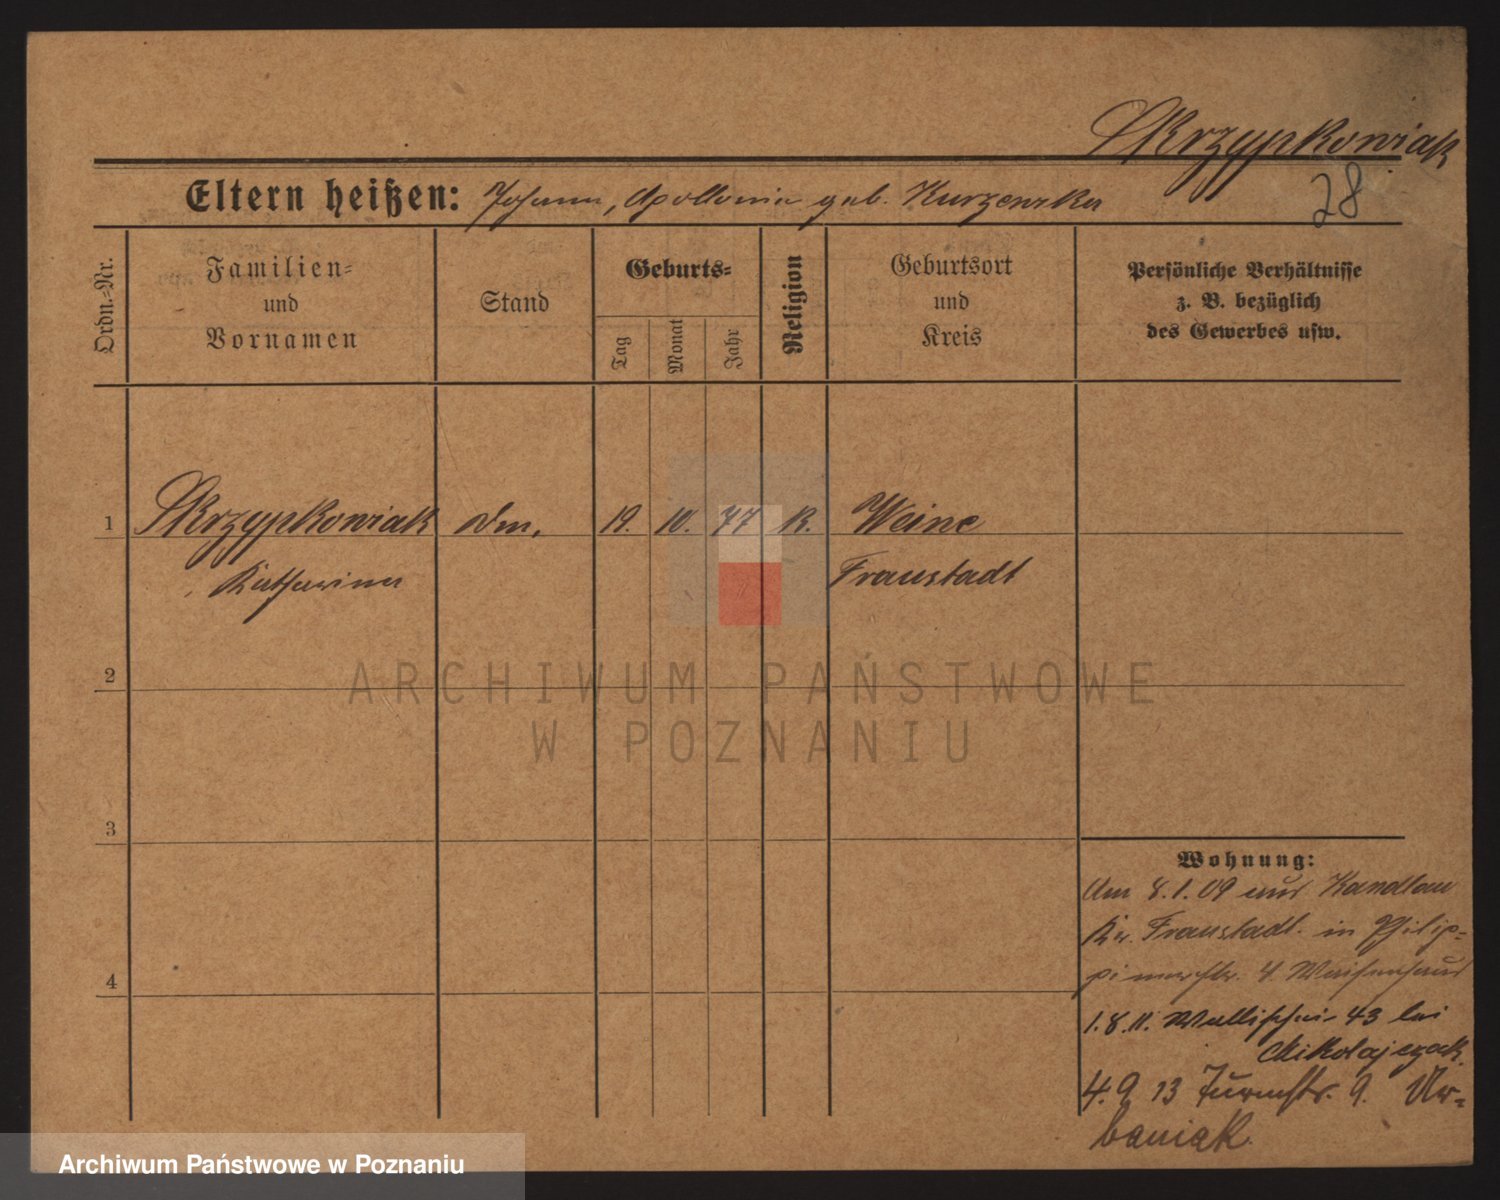 Skrzypkowiak
28
Eltern heißen: Johann, Apollonia geb. Kurzewska
Ordn.-Nr.
Familien-
und
Vornamen
Stand
Geburts-
Tag
Monat
Jahr
Religion
Geburtsort
und
Kreis
Persönliche Verhältnisse
z. B. bezüglich
des Gewerbes usw.
1
Skrzypkowiak
Katharina
19. 10. 77
K.
Weine
Fraustadt
2
3
4
Wohnung:
Am 8.1.09 aus Kandlau
Kr. Fraustadt. in Philip-
pinenstr. 4 Waisenhaus
1.8.11. Wallischei 43 bei
Mikolajczak.
4.9 13 Turmstr. 9. Ur-
baniak
ARCHIWUM PAŃSTWOWE
W POZNANIU
Archiwum Państwowe w Poznaniu